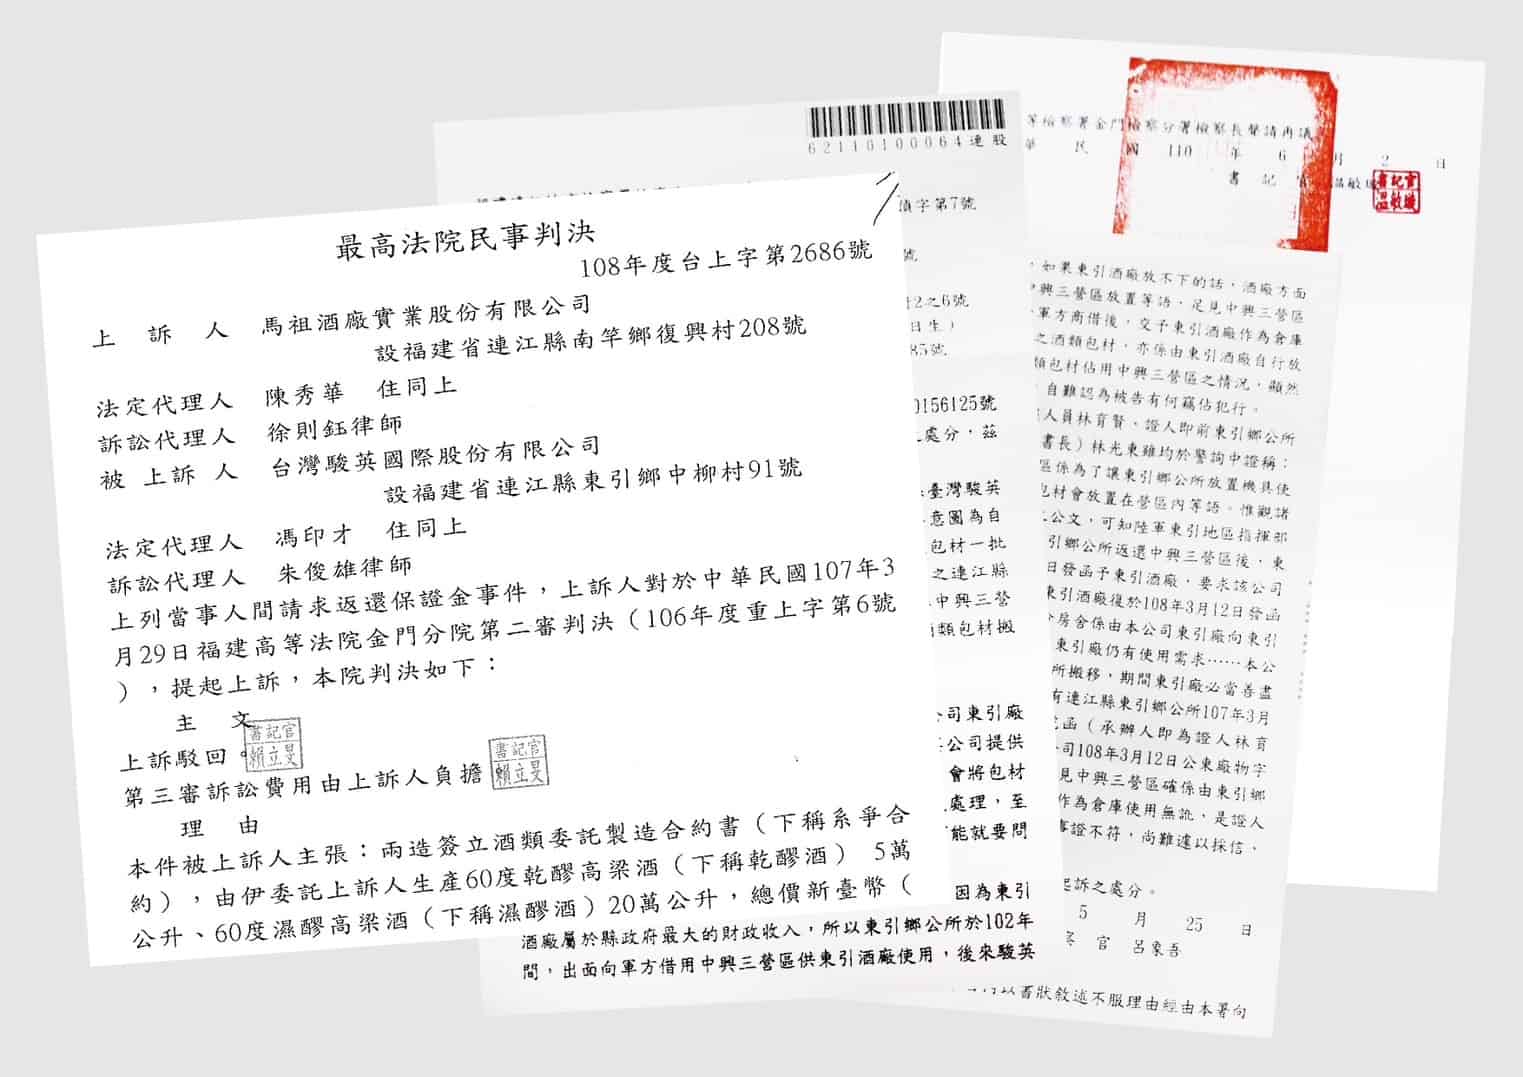 最高法院民事判決
108年度台上字第2686號
上訴人 馬祖酒廠實業股份有限公司
設福建省連江縣南竿鄉復興村208號
法定代理人 陳秀華 住同上
訴訟代理人 徐則鈺律師
被上訴人 台灣駿英國際股份有限公司
設福建省連江縣東引鄉中柳村91號
法定代理人 馮印才 住同上
訴訟代理人 朱俊雄律師
上列當事人間請求返還保證金事件，上訴人對於中華民國107年3
月29日福建高等法院金門分院第二審判決（106年度重上字第6號
），提起上訴，本院判決如下：
主文
上訴駁回。
書記官
賴立旻
第三審訴訟費用由上訴人負擔
書記官
賴立旻
理由
本件被上訴人主張：兩造簽立酒類委託製造合約書（下稱系爭合
約），由伊委託上訴人生產60度乾醪高梁酒（下稱乾醪酒） 5萬
公升、60度濕醪高梁酒（下稱濕醪酒）20萬公升，總價新臺幣（
62110100064連股
偵字第7號
號
2之6號
日生）
85號
0156125號
處分，茲
臺灣駿英
意圖為自
包材一批
之連江縣
中興三營
類包材搬
公司東引廠
公司提供
會將包材
處理，至
能就要問
因為東引
酒廠屬於縣政府最大的財政收入，所以東引鄉公所於102年
間，出面向軍方借用中興三營區供東引酒廠使用，後來駿英
等檢察署金門檢察分署檢察長聲請再議
華民國110年6月2日
書記官
書記官
溫敏璇
，如果東引酒廠放不下的話，酒廠方面
中興三營區放置等語，足見中興三營區
軍方商借後，交予東引酒廠作為倉庫
之酒類包材，亦係由東引酒廠自行放
類包材佔用中興三營區之情況，顯然
自難認為被告有何竊佔犯行。
人員林育賢、證人即前東引鄉公所
書長）林光東雖均於警詢中證稱：
區係為了讓東引鄉公所放置機具使
包材會放置在營區內等語。惟觀諸
公文，可知陸軍東引地區指揮部
引鄉公所返還中興三營區後，東
日發函予東引酒廠，要求該公司
東引酒廠復於108年3月12日發函
房舍係由本公司東引廠向東引
東引廠仍有使用需求……本公
所搬移，期間東引廠必當善盡
有連江縣東引鄉公所107年3月
函（承辦人即為證人林育
司108年3月12日公東廠物字
見中興三營區確係由東引鄉
作為倉庫使用無訛，是證人
事證不符，尚難遽以採信。
起訴之處分。
5月25日
官 呂象吾
以書狀敘述不服理由經由本署向